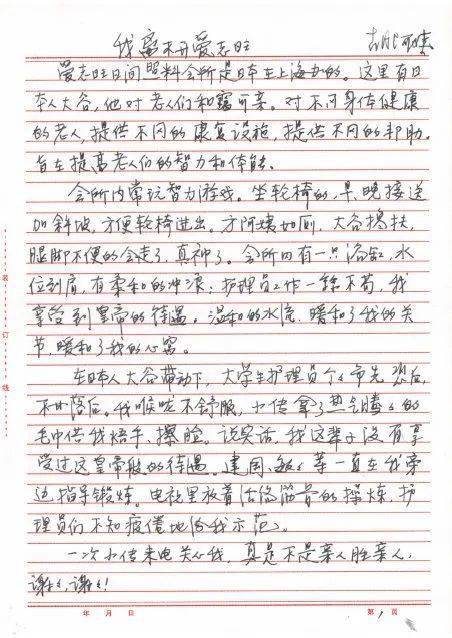 我离不开爱志旺
爱志旺日间照料会所是日本在上海办的。这里有日
本人大谷,他对老人们和蔼可亲。对不同身体健康
的老人,提供不同的康复设施,提供不同的帮助。
旨在提高老人们的智力和体能。
会所内常玩智力游戏。坐轮椅的,早晚接送
加斜坡,方便轮椅进出。方阿姨如厕,大谷搀扶,
腿脚不便的会走了,真神了。会所内有一只浴缸,水
位到肩,有柔和的冲浪,护理员工作一丝不苟,我
享受到皇帝的待遇。温和的水流,暖和了我的关
节,暖和了我的心窝。
在日本人大谷带动下,大学生护理员个々争先恐后,
不甘落后。我喉咙不舒服,小传拿了热气腾々的
毛巾供我焐手、擦脸。说实话,我这辈子没有享
受过这皇帝般的待遇。建周、敏々等一直在我旁
边指导锻炼。电视里放着活络筋骨的操炼,护
理员们不知疲倦地给我示范。
一次小传来电关心我,真是不是亲人胜亲人,
谢々,谢々!
装
订
线
年 月 日
第 1 页